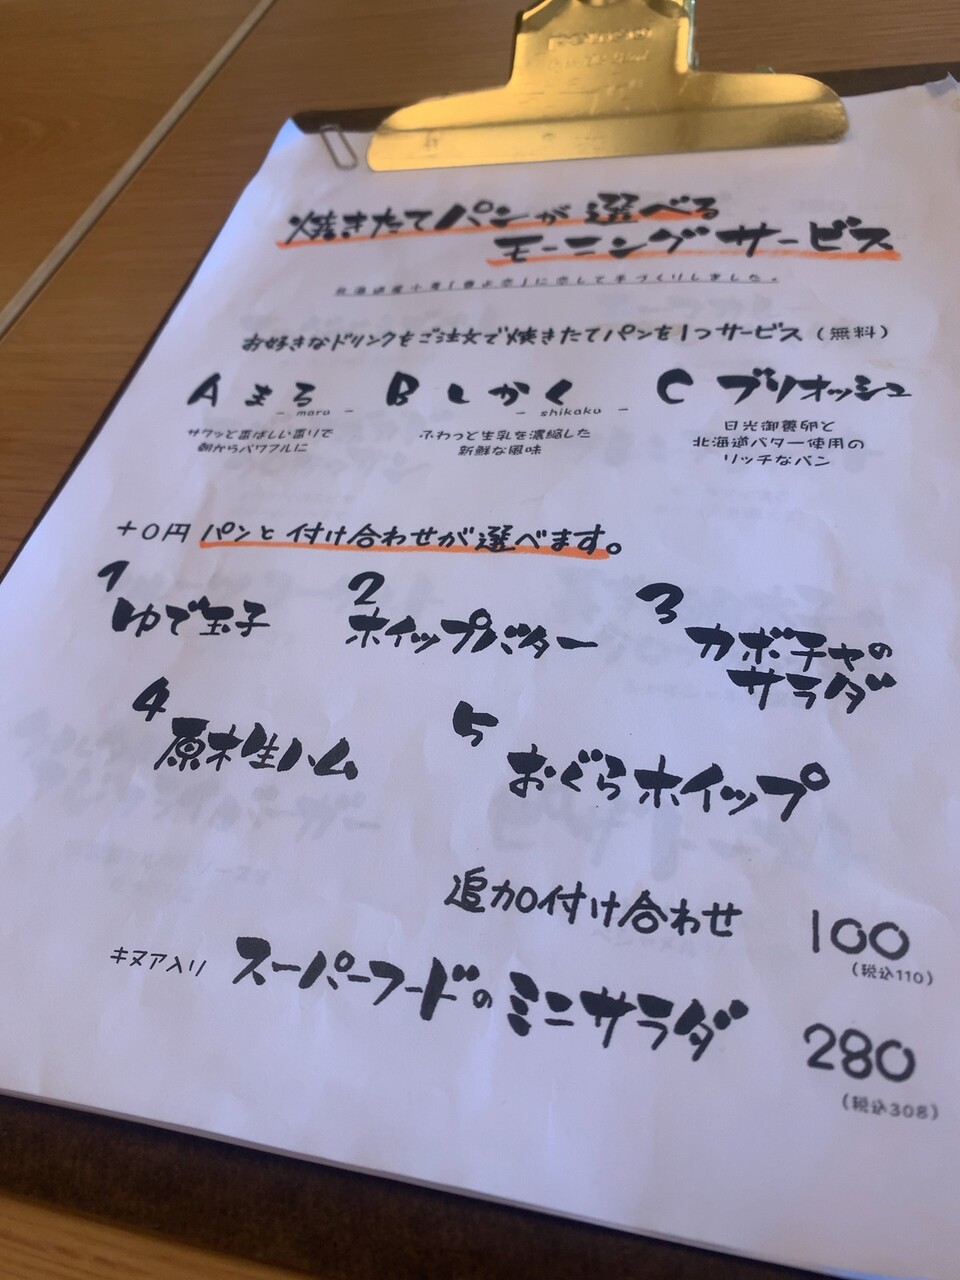 焼きたてパンが選べる
モーニングサービス
北海道産小麦「春よ恋」に恋して手づくりしました。
お好きなドリンクをご注文で焼きたてパンを1つサービス（無料）
A まる B しかく C ブリオッシュ
- maru - - shikaku -
サクッと香ばしい香りで
朝からパワフルに
ふわっと生乳を濃縮した
新鮮な風味
日光御養卵と
北海道バター使用の
リッチなパン
+0円 パンと付け合わせが選べます。
1 ゆで玉子
2 ホイップバター
3 カボチャの
サラダ
4 原木生ハム
5 おぐらホイップ
追加付け合わせ 100
(税込110)
キヌア入り スーパーフードのミニサラダ 280
(税込308)